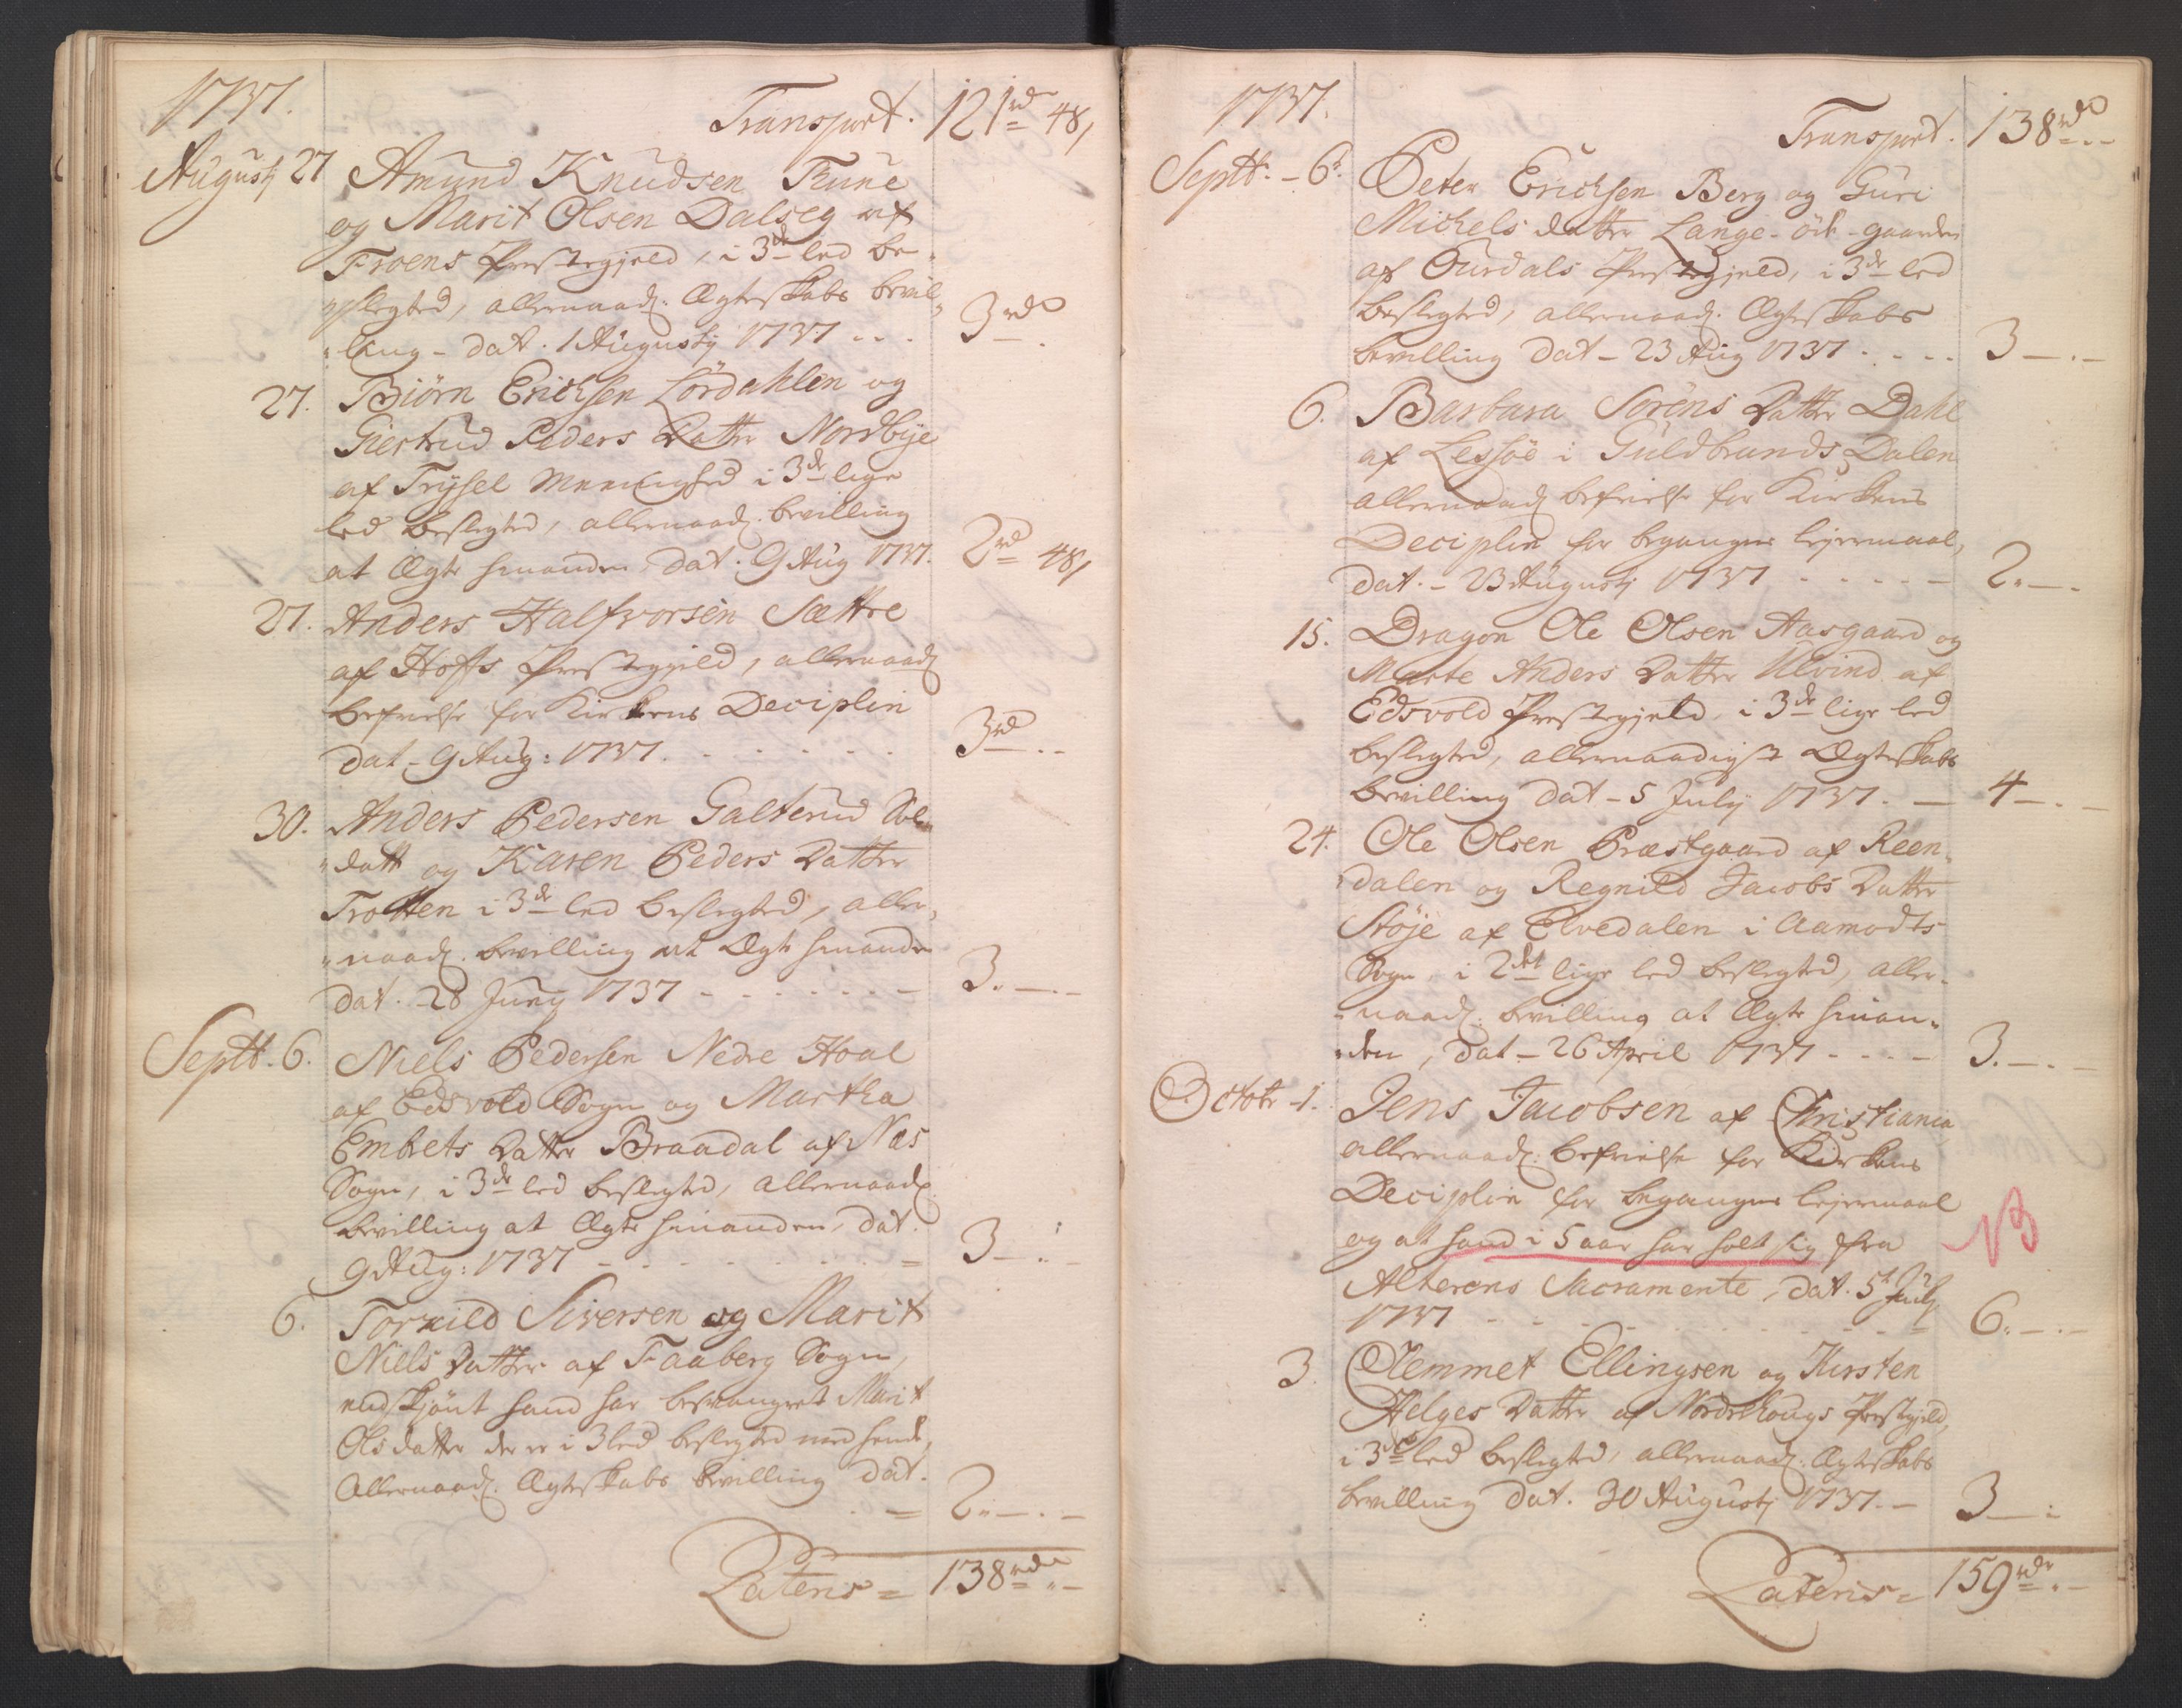 1737.
Transport. 121 rd 48,
Augustj 27 Amund Knudsen Rune
og Marit Olsen Dalseg af
Froens Prestegjeld, i 3de led be-
slegted, allernaad. Ægteskabs bevil-
ling - dat. 1 Augustj 1737 . . . 3 rd
27. Biörn Erichsen Lördahlen og
Giertrud Peders Datter Nordbye
af Trysel Meenighed i 3de lige
led beslegted, allernaad. bevilling
at Ægte hinanden dat. 9 Aug 1737. 2 rd 48,
27. Anders Halfvorsen Sættre
af Hoffs Prestegjeld, allernaad
befrielse for Kirkens Deciplin
dat - 9 Aug: 1737. 3 rd
30. Anders Pedersen Galterud Sol-
datt og Karen Peders Datter
Trotten i 3de led beslegted, aller-
naad. bevilling at Ægte hinanden
dat. - 28 Junij 1737 3. - . -
Septb. 6. Niels Pedersen Nedre Hoal
af Edsvold Sogn og Martha
Embrets Datter Braadal af Næs
Sogn, i 3de led beslegted, allernaad
bevilling at Ægte hinanden, dat.
9 Aug: 1737 3 -
6. Torkild Siversen og Marit
Niels Datter af Faaberg Sogn,
endskjönt hand har besvangret Marit
Olsdatter der er i 3 led beslegted med hende,
Allernaad. Ægteskabs bevilling dat.
= 2. - . -
Lateris = 138 rd
1737.
Transport. 138 rd
Septb. - 6. Peter Erichsen Berg og Guri
Michels datter Lange-öde-gaarden
af Ourdals Prestegjeld, i 3de led
beslegted, allernaad. Ægteskabs
bevilling dat - 23 Aug 1737 3 - . -
6. Barbara Sörens Datter Dahl
af Lessöe i Guldbrands Dalen
allernaad befrielse for Kirkens
Deciplin for begangne lejermaal,
dat. - 23 Augustj 1737 2. - .
15. Dragon Ole Olsen Aasgaard og
Marte Anders Datter Ulvind af
Edsvold Prestegjeld, i 3de lige led
beslegted, allernaadigst Ægteskabs
bevilling dat - 5 July 1737. 4 - . -
24. Ole Olsen Præstgaard af Reen-
dalen og Regnild Jacobs Datter
Stöje af Elvedalen i Aamodts
Sogn, i 2det lige led beslegted, aller-
naad. bevilling at Ægte hinan-
den, dat - 26 April 1737 3. - . -
Octobr - 1. Jens Jacobsen af Christiania
allernaad: befrielse for Kirkens
Deciplin for begangne lejermaal
og at hand i 5 aar har holt sig fra
Alterens Sacramente, dat. 5t July
1737 6. - . -
3. Clemmet Ellingsen og Kirsten
Helges Datter af Nordrehougs Prestgjeld,
i 3de led beslegted, allernaad: Ægteskabs
bevilling dat. 30 Augustj 1737. - 3 -
Lateris = 159 rd